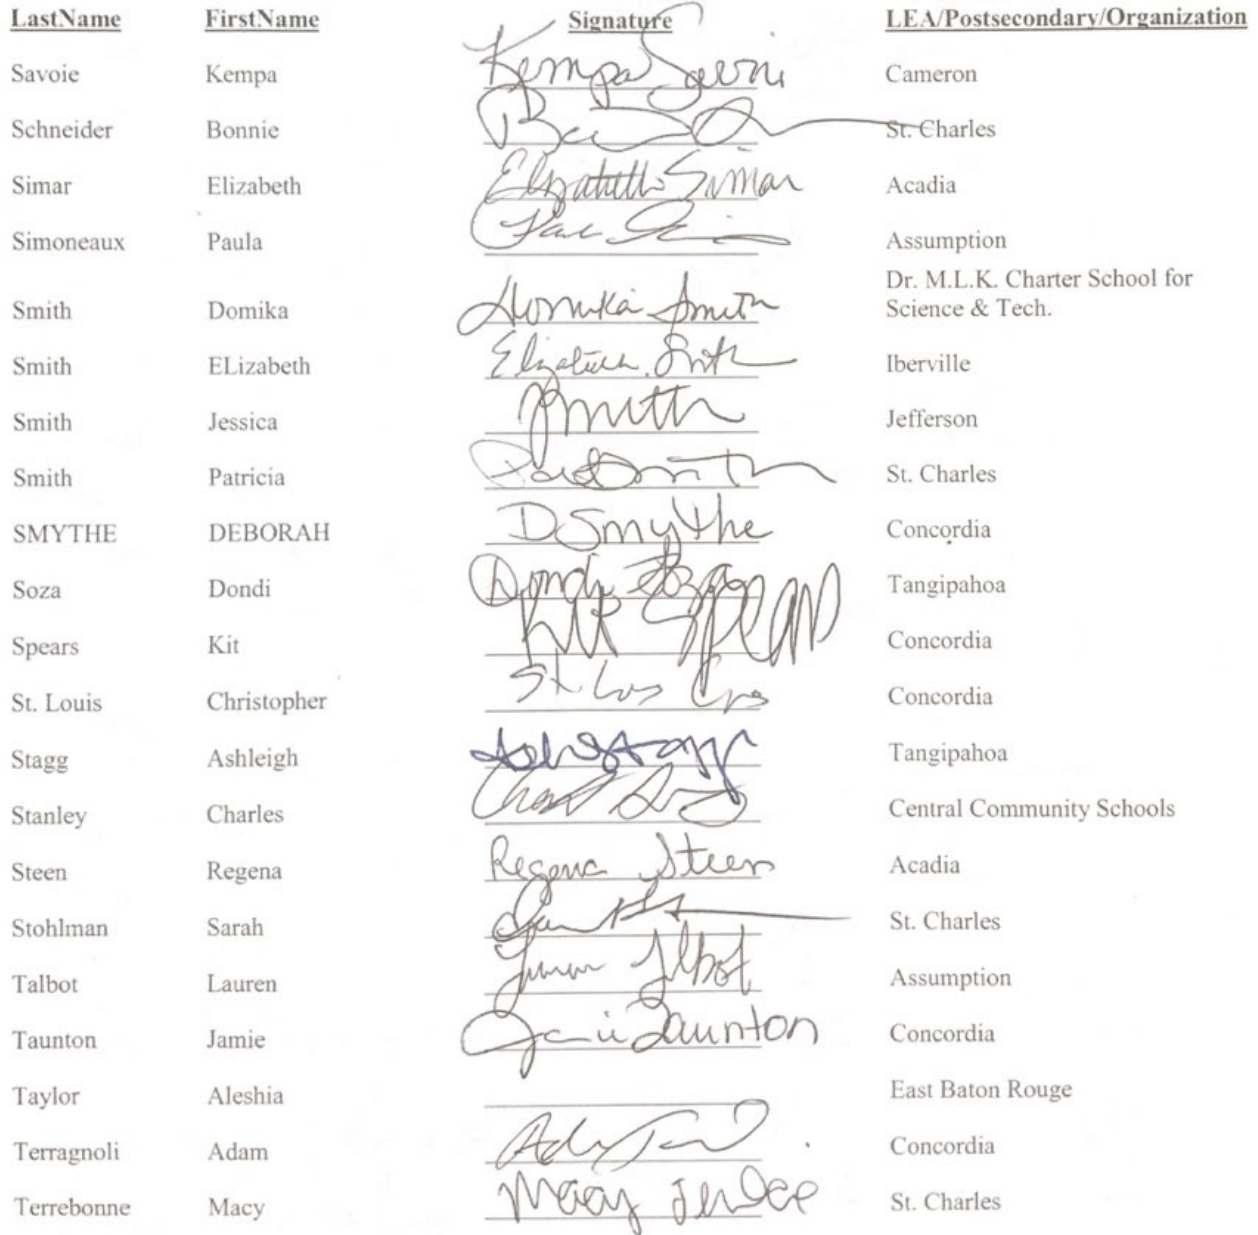 LastName FirstName Signature LEA/Postsecondary/Organization
Savoie Kempa Kempa Savoie Cameron
Schneider Bonnie St. Charles
Simar Elizabeth Elizabeth Simar Acadia
Simoneaux Paula Assumption
Smith Domika Domika Smith Dr. M.L.K. Charter School for
Science & Tech.
Smith ELizabeth Elizabeth Smith Iberville
Smith Jessica JSmith Jefferson
Smith Patricia St. Charles
SMYTHE DEBORAH D Smythe Concordia
Soza Dondi Dondi Soza Tangipahoa
Spears Kit Kit Spears Concordia
St. Louis Christopher Concordia
Stagg Ashleigh Tangipahoa
Stanley Charles Central Community Schools
Steen Regena Regena Steen Acadia
Stohlman Sarah St. Charles
Talbot Lauren Lauren Talbot Assumption
Taunton Jamie Jamie Taunton Concordia
Taylor Aleshia East Baton Rouge
Terragnoli Adam Concordia
Terrebonne Macy Macy St. Charles